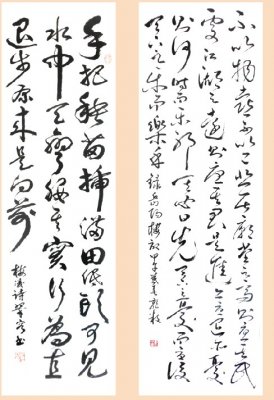 不以物喜不以己悲居廟堂之高則憂其民
處江湖之遠則憂其君是進亦憂退亦憂然
則何時而樂耶其必曰先天下之憂而憂後
天下之樂而樂乎 錄岳陽樓記甲午
手把秧苗插滿田低頭可見
水中天彎腰其實行為直
退步原來是向前
詩
書